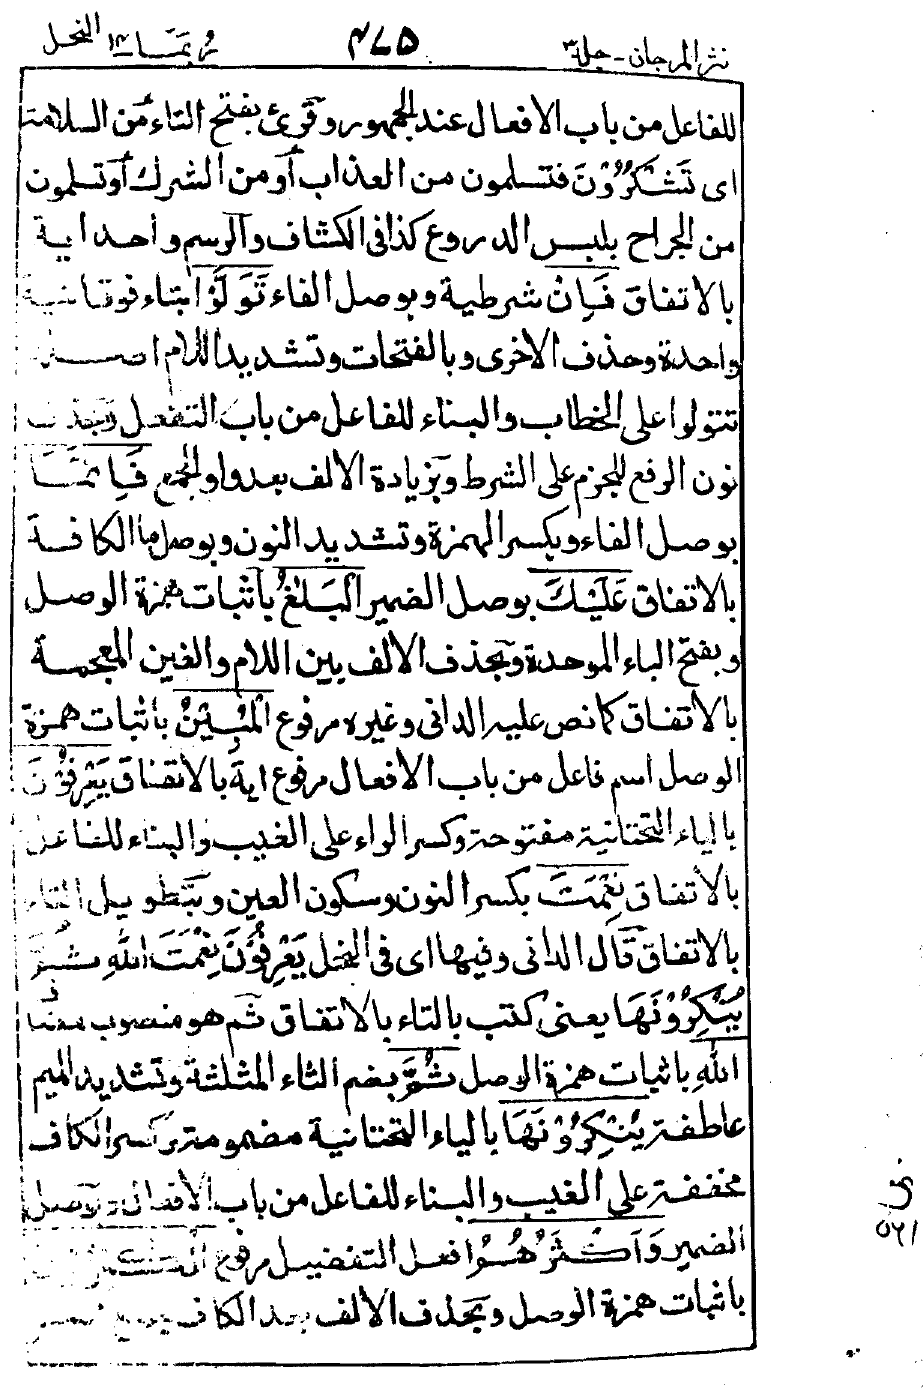 نثر المرجان - جلد ٣
٤٧٥
ربما ١٤ النحل
للفاعل من باب الافعال عند الجمهور وقرئ بفتح التاء من السلامة
اى تَشْكُرُوْنَ فتسلمون من العذاب أو من الشرك أو تسلمون
من الجراح بلبس الدروع كذا فى الكشاف والرسم واحد اية
بالاتفاق فَاِنْ شرطية وبوصل الفاء تَوَلَّوْا بتاء فوقانية
واحدة وحذف الاخرى وبالفتحات وتشديد اللام اصله
تتولوا على الخطاب والبناء للفاعل من باب التفعل وبحذف
نون الرفع للجزم على الشرط وبزيادة الالف بعد واو الجمع فَاِنَّمَا
بوصل الفاء وبكسر الهمزة وتشديد النون وبوصل ما الكافة
بالاتفاق عَلَيْكَ بوصل الضمير الْبَلٰغُ باثبات همزة الوصل
وبفتح الباء الموحدة وبحذف الالف بين اللام والغين المعجمة
بالاتفاق كما نص عليه الدانى وغيره مرفوع الْمُبِيْنُ باثبات همزة
الوصل اسم فاعل من باب الافعال مرفوع اية بالاتفاق يَعْرِفُوْنَ
بالياء التحتانية مفتوحة وكسر الراء على الغيب والبناء للفاعل
بالاتفاق نِعْمَتَ بكسر النون وسكون العين وبتطويل التاء
بالاتفاق قال الدانى وفيها اى فى النحل يَعْرِفُوْنَ نِعْمَتَ اللّٰهِ ثُمَّ
يُنْكِرُوْنَهَا يعنى كتب بالتاء بالاتفاق ثم هو منصوب مضاف
اللّٰهِ باثبات همزة الوصل ثُمَّ بضم الثاء المثلثة وتشديد الميم
عاطفة يُنْكِرُوْنَهَا بالياء التحتانية مضمومة وكسر الكاف
مخففة على الغيب والبناء للفاعل من باب الافعال وبوصل
الضمير وَاَكْثَرُهُمُ افعل التفضيل مرفوع
باثبات همزة الوصل وبحذف الالف بعد الكاف